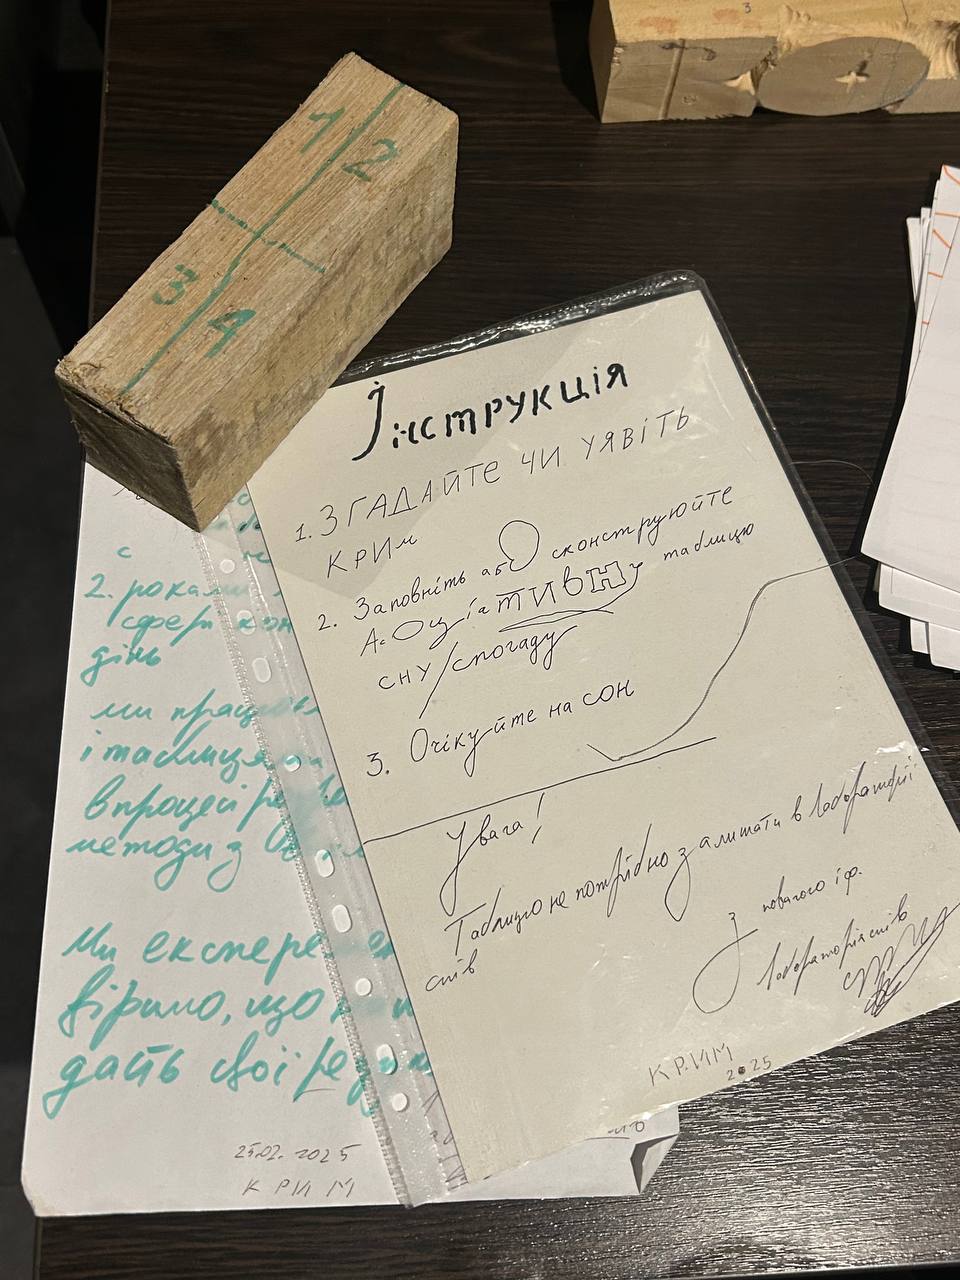 1 2
3 4
3
Інструкція
1. ЗГАДАЙТЕ ЧИ УЯВІТЬ
КРИМ
2. Заповніть або сконструюйте
АсОціаТИВНу таблицю
сну/спогаду
3. Очікуйте на сон
Увага!
Таблицю не потрібно залишати в лабораторії
снів
З повагою
лабораторія снів
КРИМ
2025
2. рока
сфери кон
дінь
ми прац
і таблиця
в процесі
методи з
Ми експере
віримо, що
дасть свої
25.02.2025
КРИМ